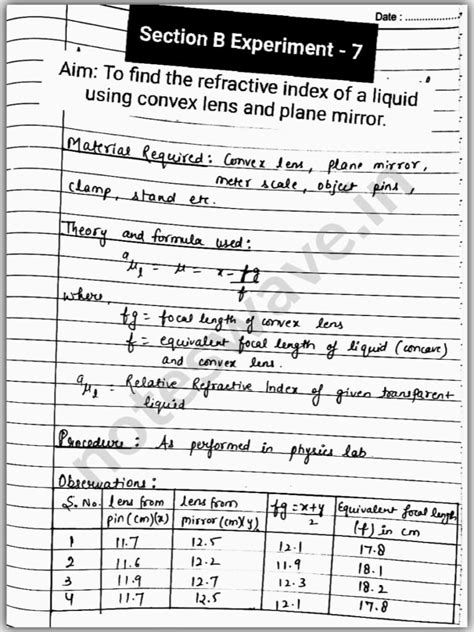 Date : ................
Section B Experiment - 7
Aim: To find the refractive index of a liquid
using convex lens and plane mirror.
Material Required : Convex lens, plane mirror,
meter scale, object pins,
clamp, stand etc.
Theory and formula used :
ᵃμₗ = μ = x - fg
f
where,
fg = focal length of convex lens
f = equivalent focal length of liquid (concave)
and convex lens.
ᵃμₗ = Relative Refractive Index of given transparent
liquid
Procedure : As performed in physics lab
Observations :
S. No. lens from pin (cm)(x) lens from mirror (cm)(y) fg = x+y/2 Equivalent focal length (f) in cm
1 11.7 12.5 12.1 17.8
2 11.6 12.2 11.9 18.1
3 11.9 12.7 12.3 18.2
4 11.7 12.5 12.1 17.8
noteswave.in